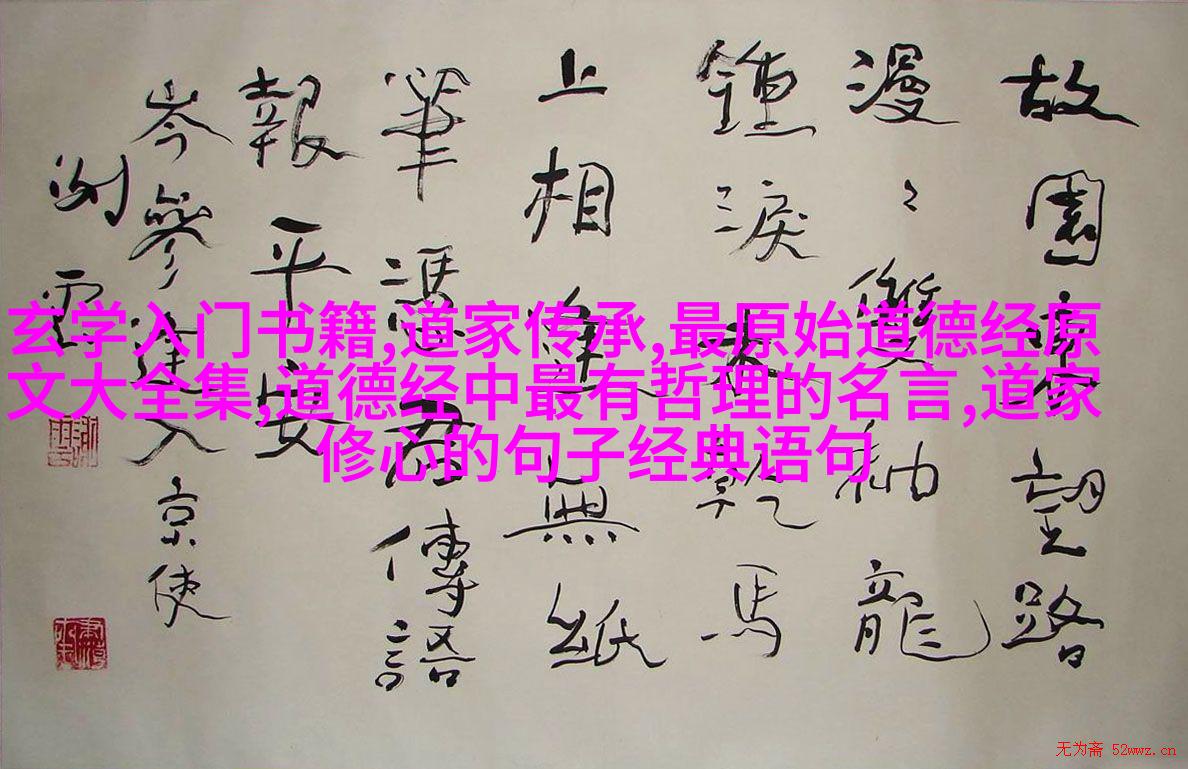 故園東望路
漫〻雙袖龍
鍾淚未乾馬
上相逢無紙
筆憑君傳語
報平安
岑參逢入京使
玄学入门书籍,道家传承,最原始道德经原
文大全集,道德经中最有哲理的名言,道家
修心的句子经典语句
无为斋 52wwz.cn